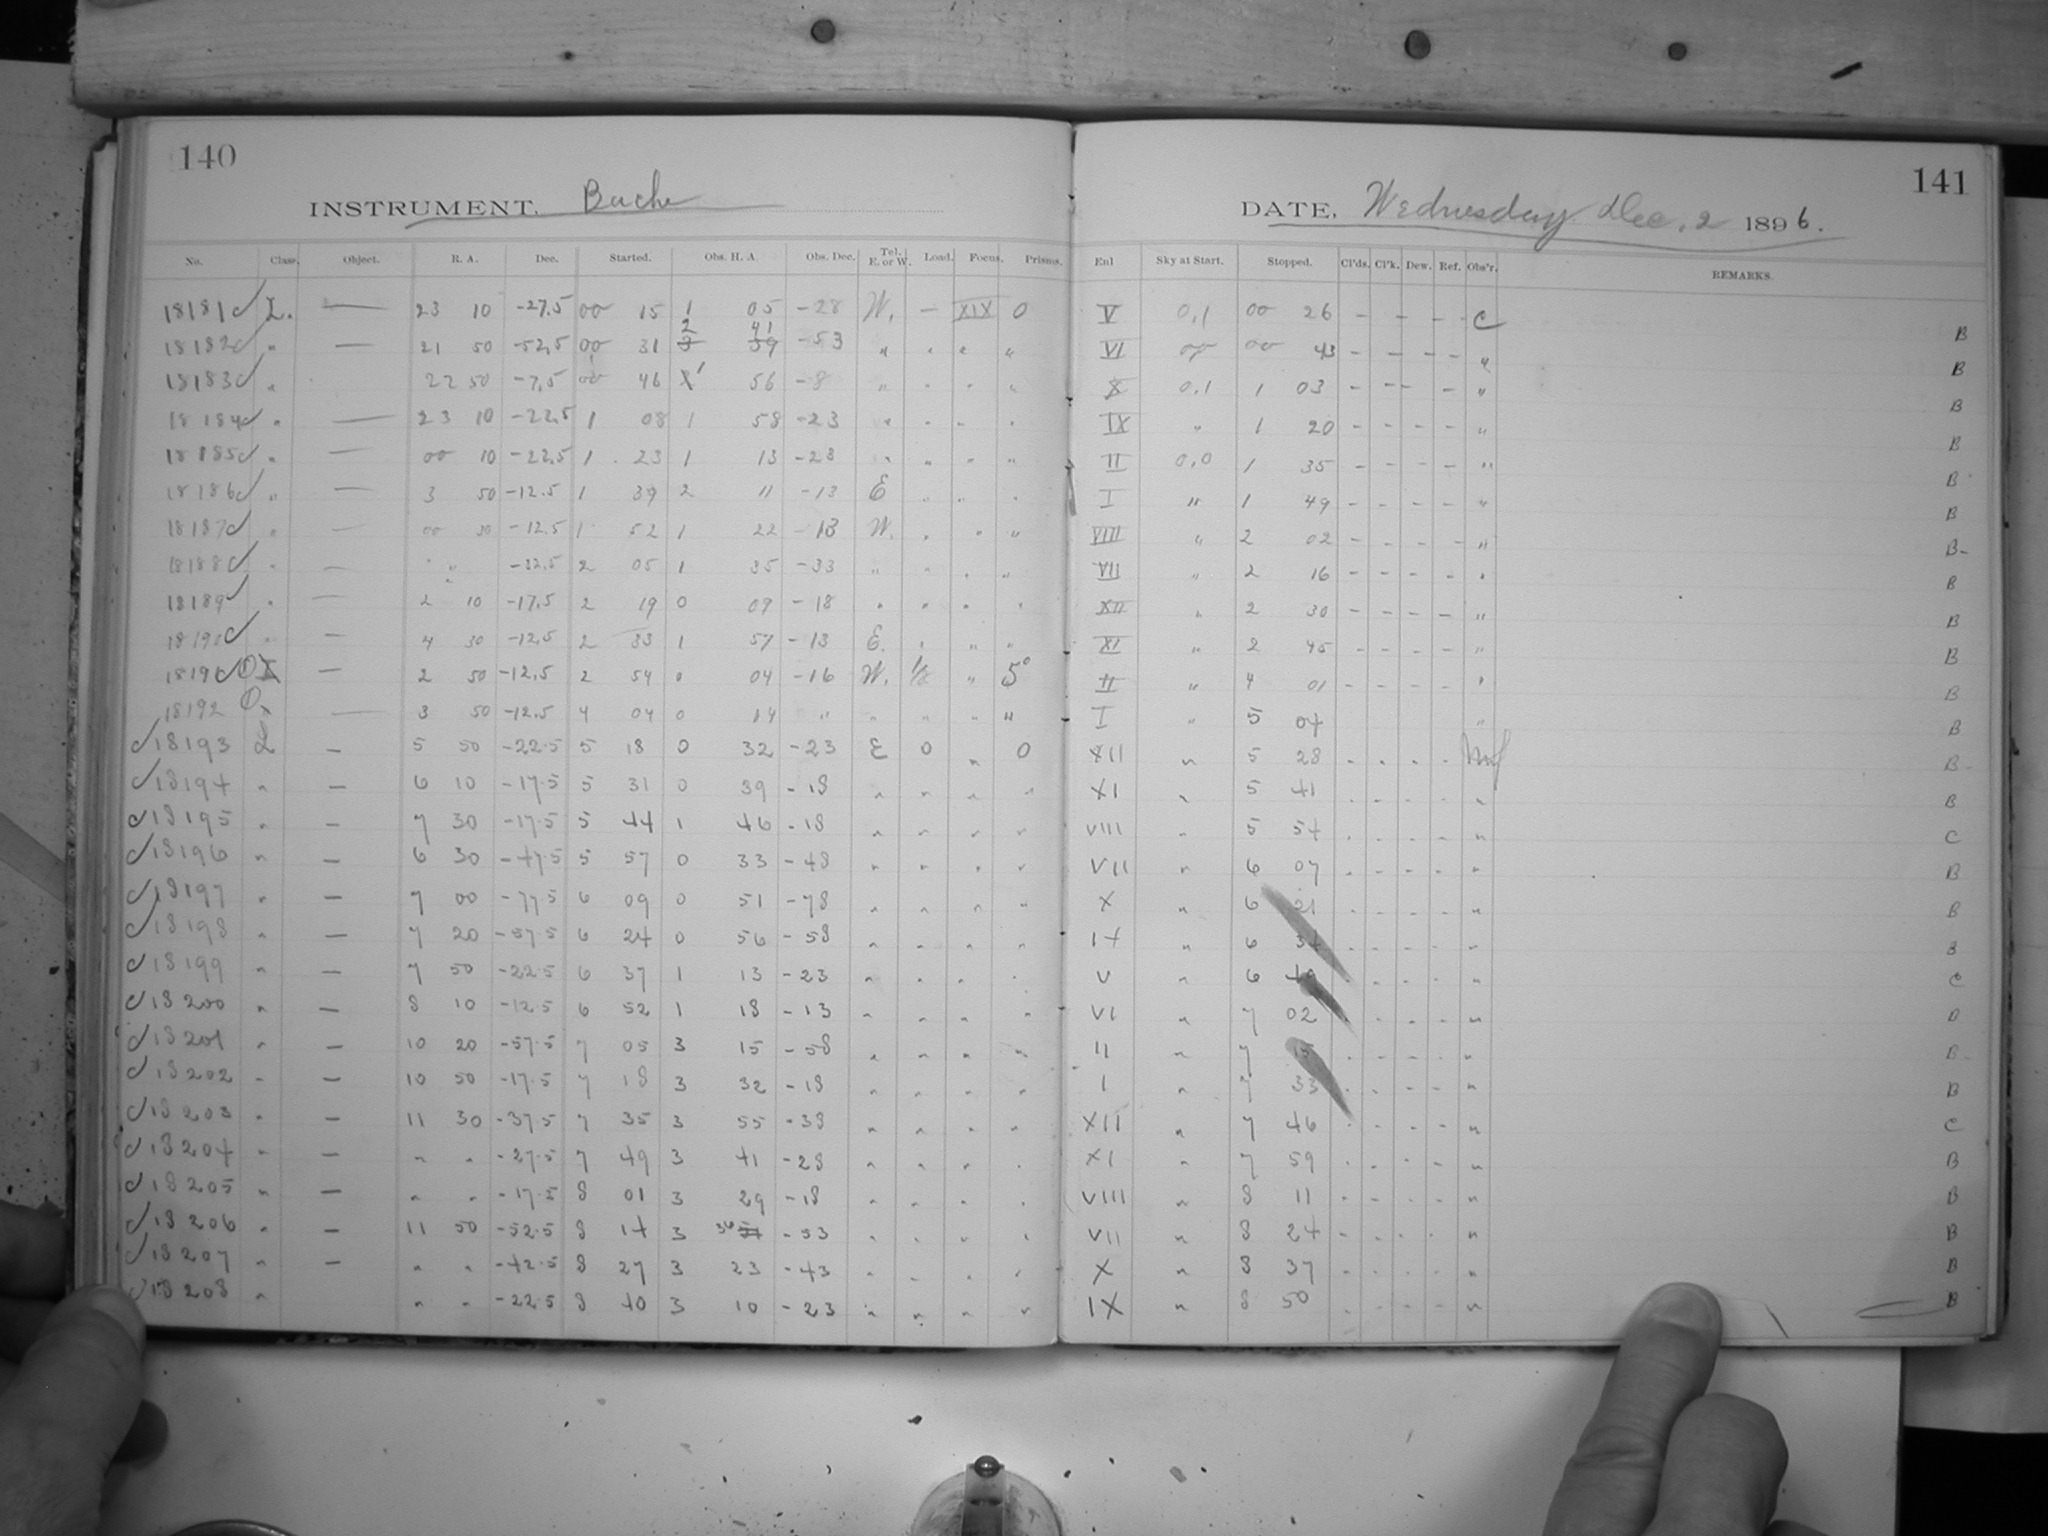 140
INSTRUMENT. Bache
No. Class. Object. R. A. Dec. Started. Obs. H. A. Obs. Dec. Tel. E. or W. Load. Focus. Prisms.
18181 L. — 23 10 -27.5 00 15 1 05 -28 W. — XIX 0
18182 " — 21 50 -52.5 00 31 2 41 -53 " " " "
18183 " 22 50 -7.5 00 46 1 56 -8 " " " "
18184 " — 23 10 -22.5 1 08 1 58 -23 " " " "
18185 " — 00 10 -22.5 1 23 1 13 -23 " " " "
18186 " — 3 50 -12.5 1 39 2 11 -13 E " " "
18187 " — 00 30 -12.5 1 52 1 22 -13 W. " " "
18188 " — " " -32.5 2 05 1 35 -33 " " " "
18189 " — 2 10 -17.5 2 19 0 09 -18 " " " "
18190 " — 4 30 -12.5 2 33 1 57 -13 E. " " "
18191 — 2 50 -12.5 2 54 0 04 -16 W. " 5°
18192 — 3 50 -12.5 4 04 0 14 " " " " "
18193 L — 5 50 -22.5 5 18 0 32 -23 E 0 " 0
18194 " — 6 10 -17.5 5 31 0 39 -18 " " " "
18195 " — 7 30 -17.5 5 44 1 46 -18 " " " "
18196 " — 6 30 -47.5 5 57 0 33 -48 " " " "
18197 " — 7 00 -77.5 6 09 0 51 -78 " " " "
18198 " — 7 20 -57.5 6 24 0 56 -58 " " " "
18199 " — 7 50 -22.5 6 37 1 13 -23 " " " "
18200 " — 8 10 -12.5 6 52 1 18 -13 " " " "
18201 " — 10 20 -57.5 7 05 3 15 -58 " " " "
18202 " — 10 50 -17.5 7 18 3 32 -18 " " " "
18203 " — 11 30 -37.5 7 35 3 55 -38 " " " "
18204 " — " " -27.5 7 49 3 41 -28 " " " "
18205 " — " " -17.5 8 01 3 29 -18 " " " "
18206 " — 11 50 -52.5 8 14 3 36 -53 " " " "
18207 " — " " -42.5 8 27 3 23 -43 " " " "
18208 " " " -22.5 8 40 3 10 -23 " " " "
141
DATE, Wednesday Dec. 2 1896.
Enl Sky at Start. Stopped. Cl'ds. Cl'k. Dew. Ref. Obs'r. REMARKS.
V 0.1 00 26 - - - - C B
VI 00 43 - - - - " B
X 0.1 1 03 - - - - " B
IX " 1 20 - - - - " B
II 0.0 1 35 - - - - " B
I " 1 49 - - - - " B
VIII " 2 02 - - - - " B
VII " 2 16 - - - - " B
XII " 2 30 - - - - " B
XI " 2 45 - - - - " B
II " 4 01 - - - - " B
I " 5 07 " B
XII " 5 28 - - - - B
XI " 5 41 - - - - " B
VIII " 5 54 - - - - " C
VII " 6 07 - - - - " B
X " 6 21 - - - - " B
IX " 6 34 - - - - " B
V " 6 49 - - - - " C
VI " 7 02 - - - - " B
II " 7 15 - - - - " B
I " 7 33 - - - - " B
XII " 7 46 - - - - " C
XI " 7 59 - - - - " B
VIII " 8 11 - - - - " B
VII " 8 24 - - - - " B
X " 8 37 - - - - " B
IX " 8 50 - - - - " B